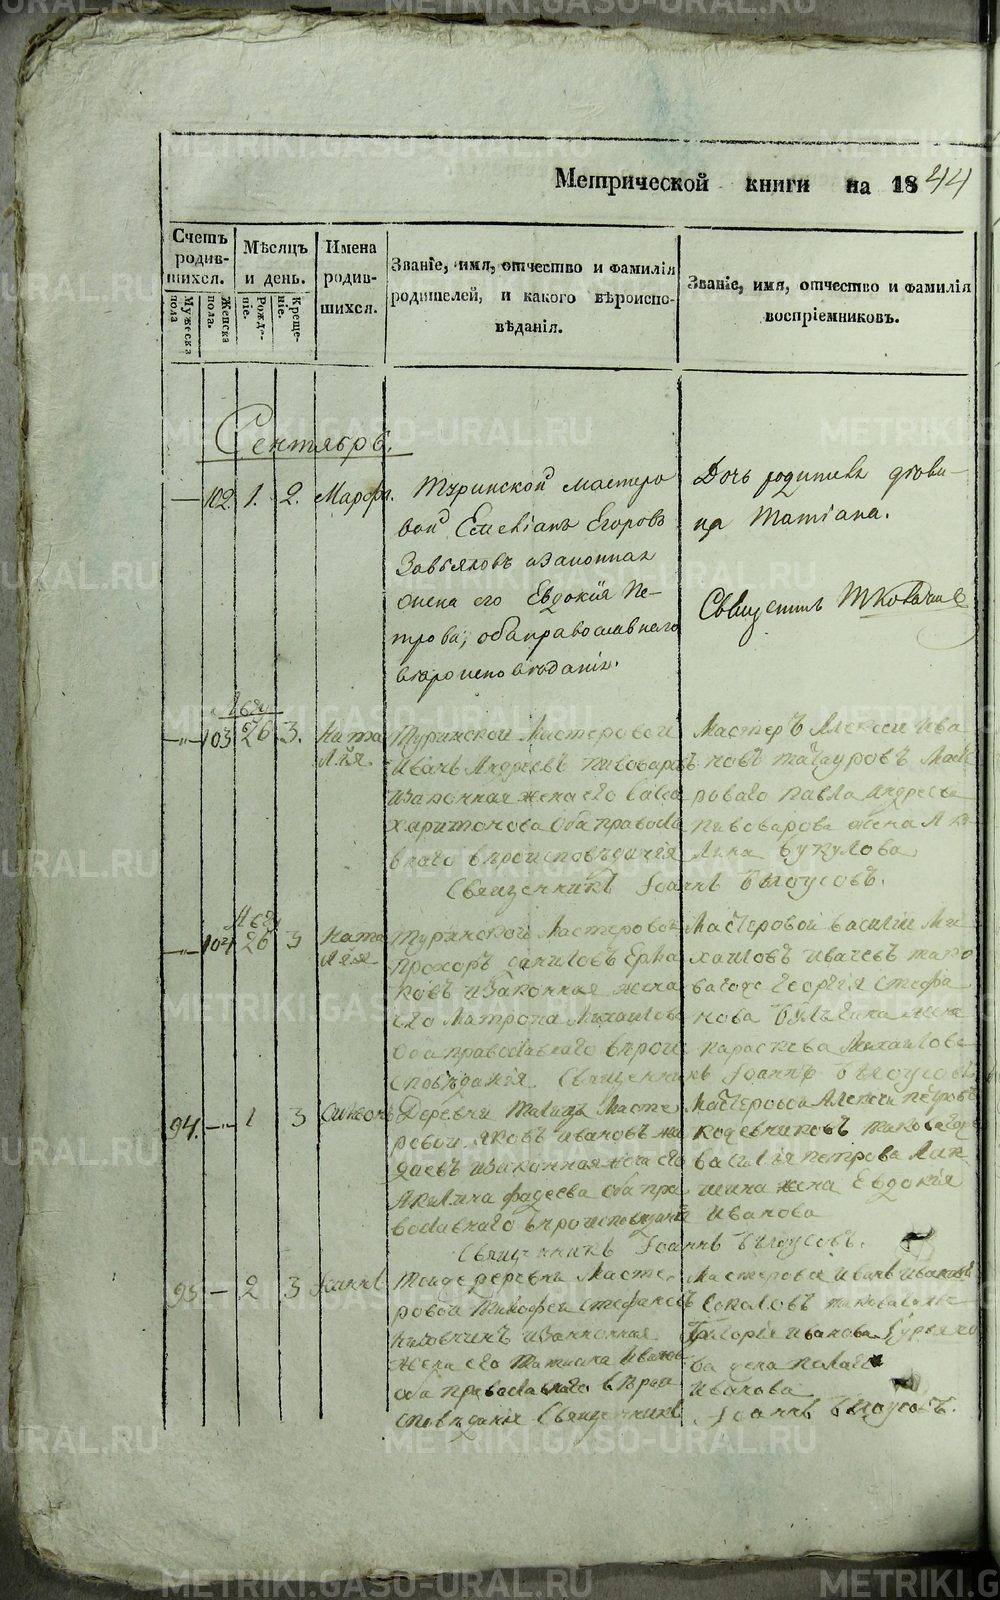 Метрической книги на 1844
Счетъ родив-шихся.
Мужеска пола
Женска пола.
Мѣсяцъ и день.
Рожде-ніе.
Креще-ніе.
Имена родив-шихся.
Званіе, имя, отчество и фамилія
родителей, и какого вѣроиспо-
вѣданія.
Званіе, имя, отчество и фамилія
воспріемниковъ.
Сентябрь.
— 102. 1. 2. Марфа.
Туринской мастеро
вой Емеліанъ Егоровъ
Завьяловъ и законная
жена его Евдокія Пе-
трова; оба православнаго
вѣроисповѣданія.
Дочь родителя дѣви-
ца Татіана.
103 26 3. Ната
лія.
Туринской Мастеровой
Иванъ Андреевъ Пивоваровъ
и законная жена его
Харитонова оба правосла
внаго вѣроисповѣданія
Священникъ Іоаннъ Бѣлоусовъ.
Мастеръ Алексей Ива
новъ Масте
роваго Павла Андреева
Пивоварова жена Аку
лина
104 26 3 Ната
лія
Туринской Мастеровой
Прохоръ Даниловъ Ерма
ковъ и законная жена
его Матрона Михаилова
оба православнаго вѣрои
сповѣданія Священникъ Іоаннъ Бѣлоусовъ
Мастеровой Василій Ми
хаиловъ тако
ваго же Георгія Стефа
нова жена
Параскева Михаилова
94. 1 3 Симеонъ
Деревни Масте
ровой Яковъ Ивановъ
и законная жена его
Акилина Фадеева оба пра
вославнаго вѣроисповѣданія
Священникъ Іоаннъ Бѣлоусовъ.
Мастеровой Алексей Петровъ
Кожевниковъ таковаго же
Василія Петрова
жена Евдокія
Иванова
95 — 2 3 Іоаннъ
Той же деревни Масте
ровой Тимофей Стефановъ
и законная
жена его Татиана Иванова
оба православнаго вѣрои
сповѣданія Священникъ Іоаннъ Бѣлоусовъ.
Мастеровой Иванъ Ивановъ
Соколовъ таковаго же
Григорія Иванова
жена Пелагея
Иванова
METRIKI.GASO-URAL.RU